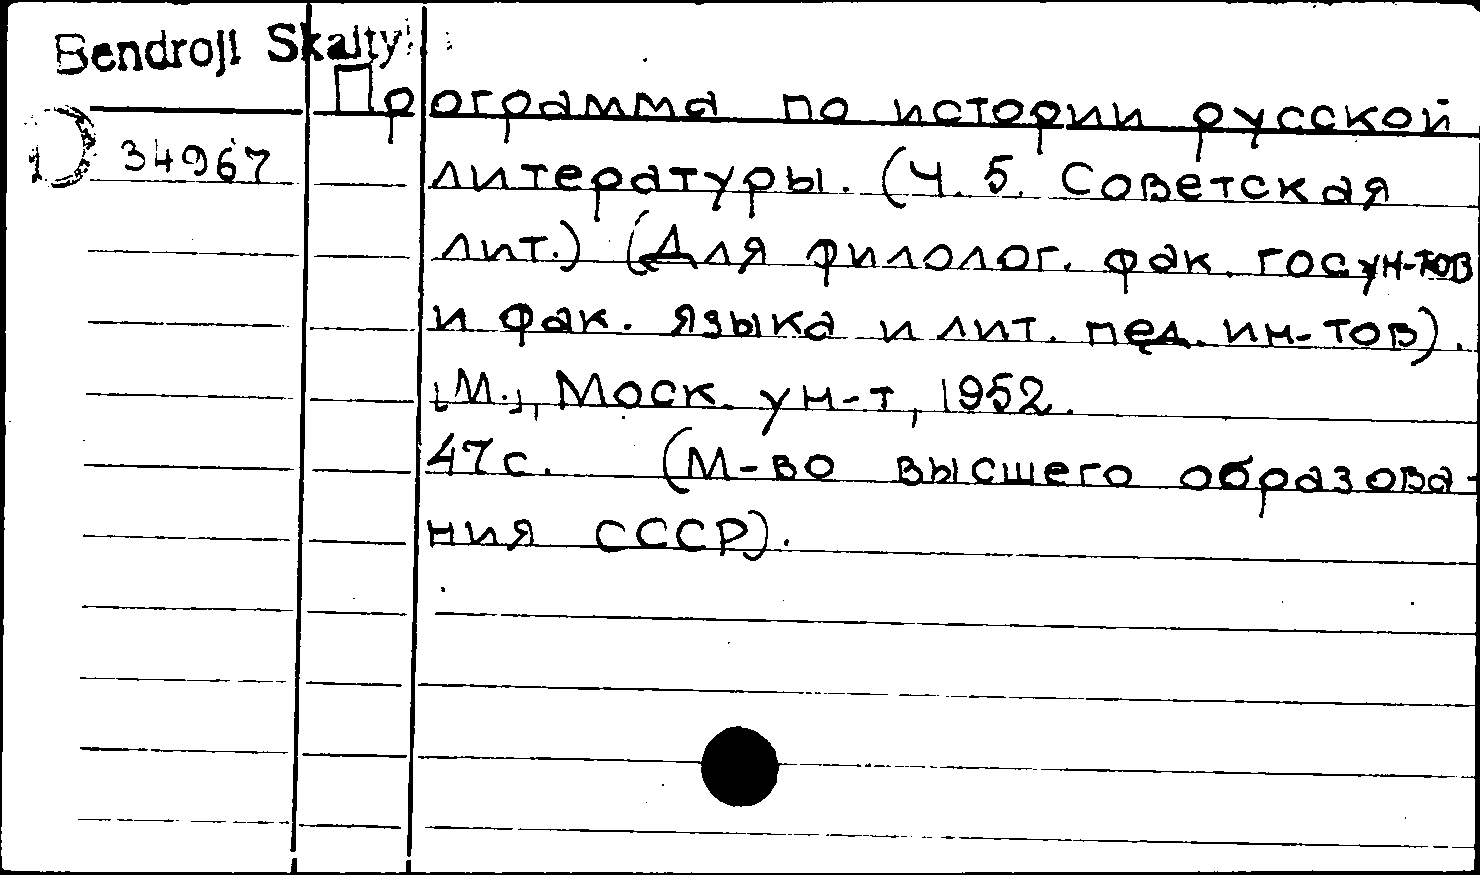 Bendroji Skaity
Программа по истории русской
34967 литературы. (Ч. 5. Советская
лит.) (Для филолог. фак. гос ун-тов
и фак. языка и лит. пед. ин-тов).
[М.], Моск. ун-т, 1952.
47 с. (М-во высшего образова-
ния СССР).